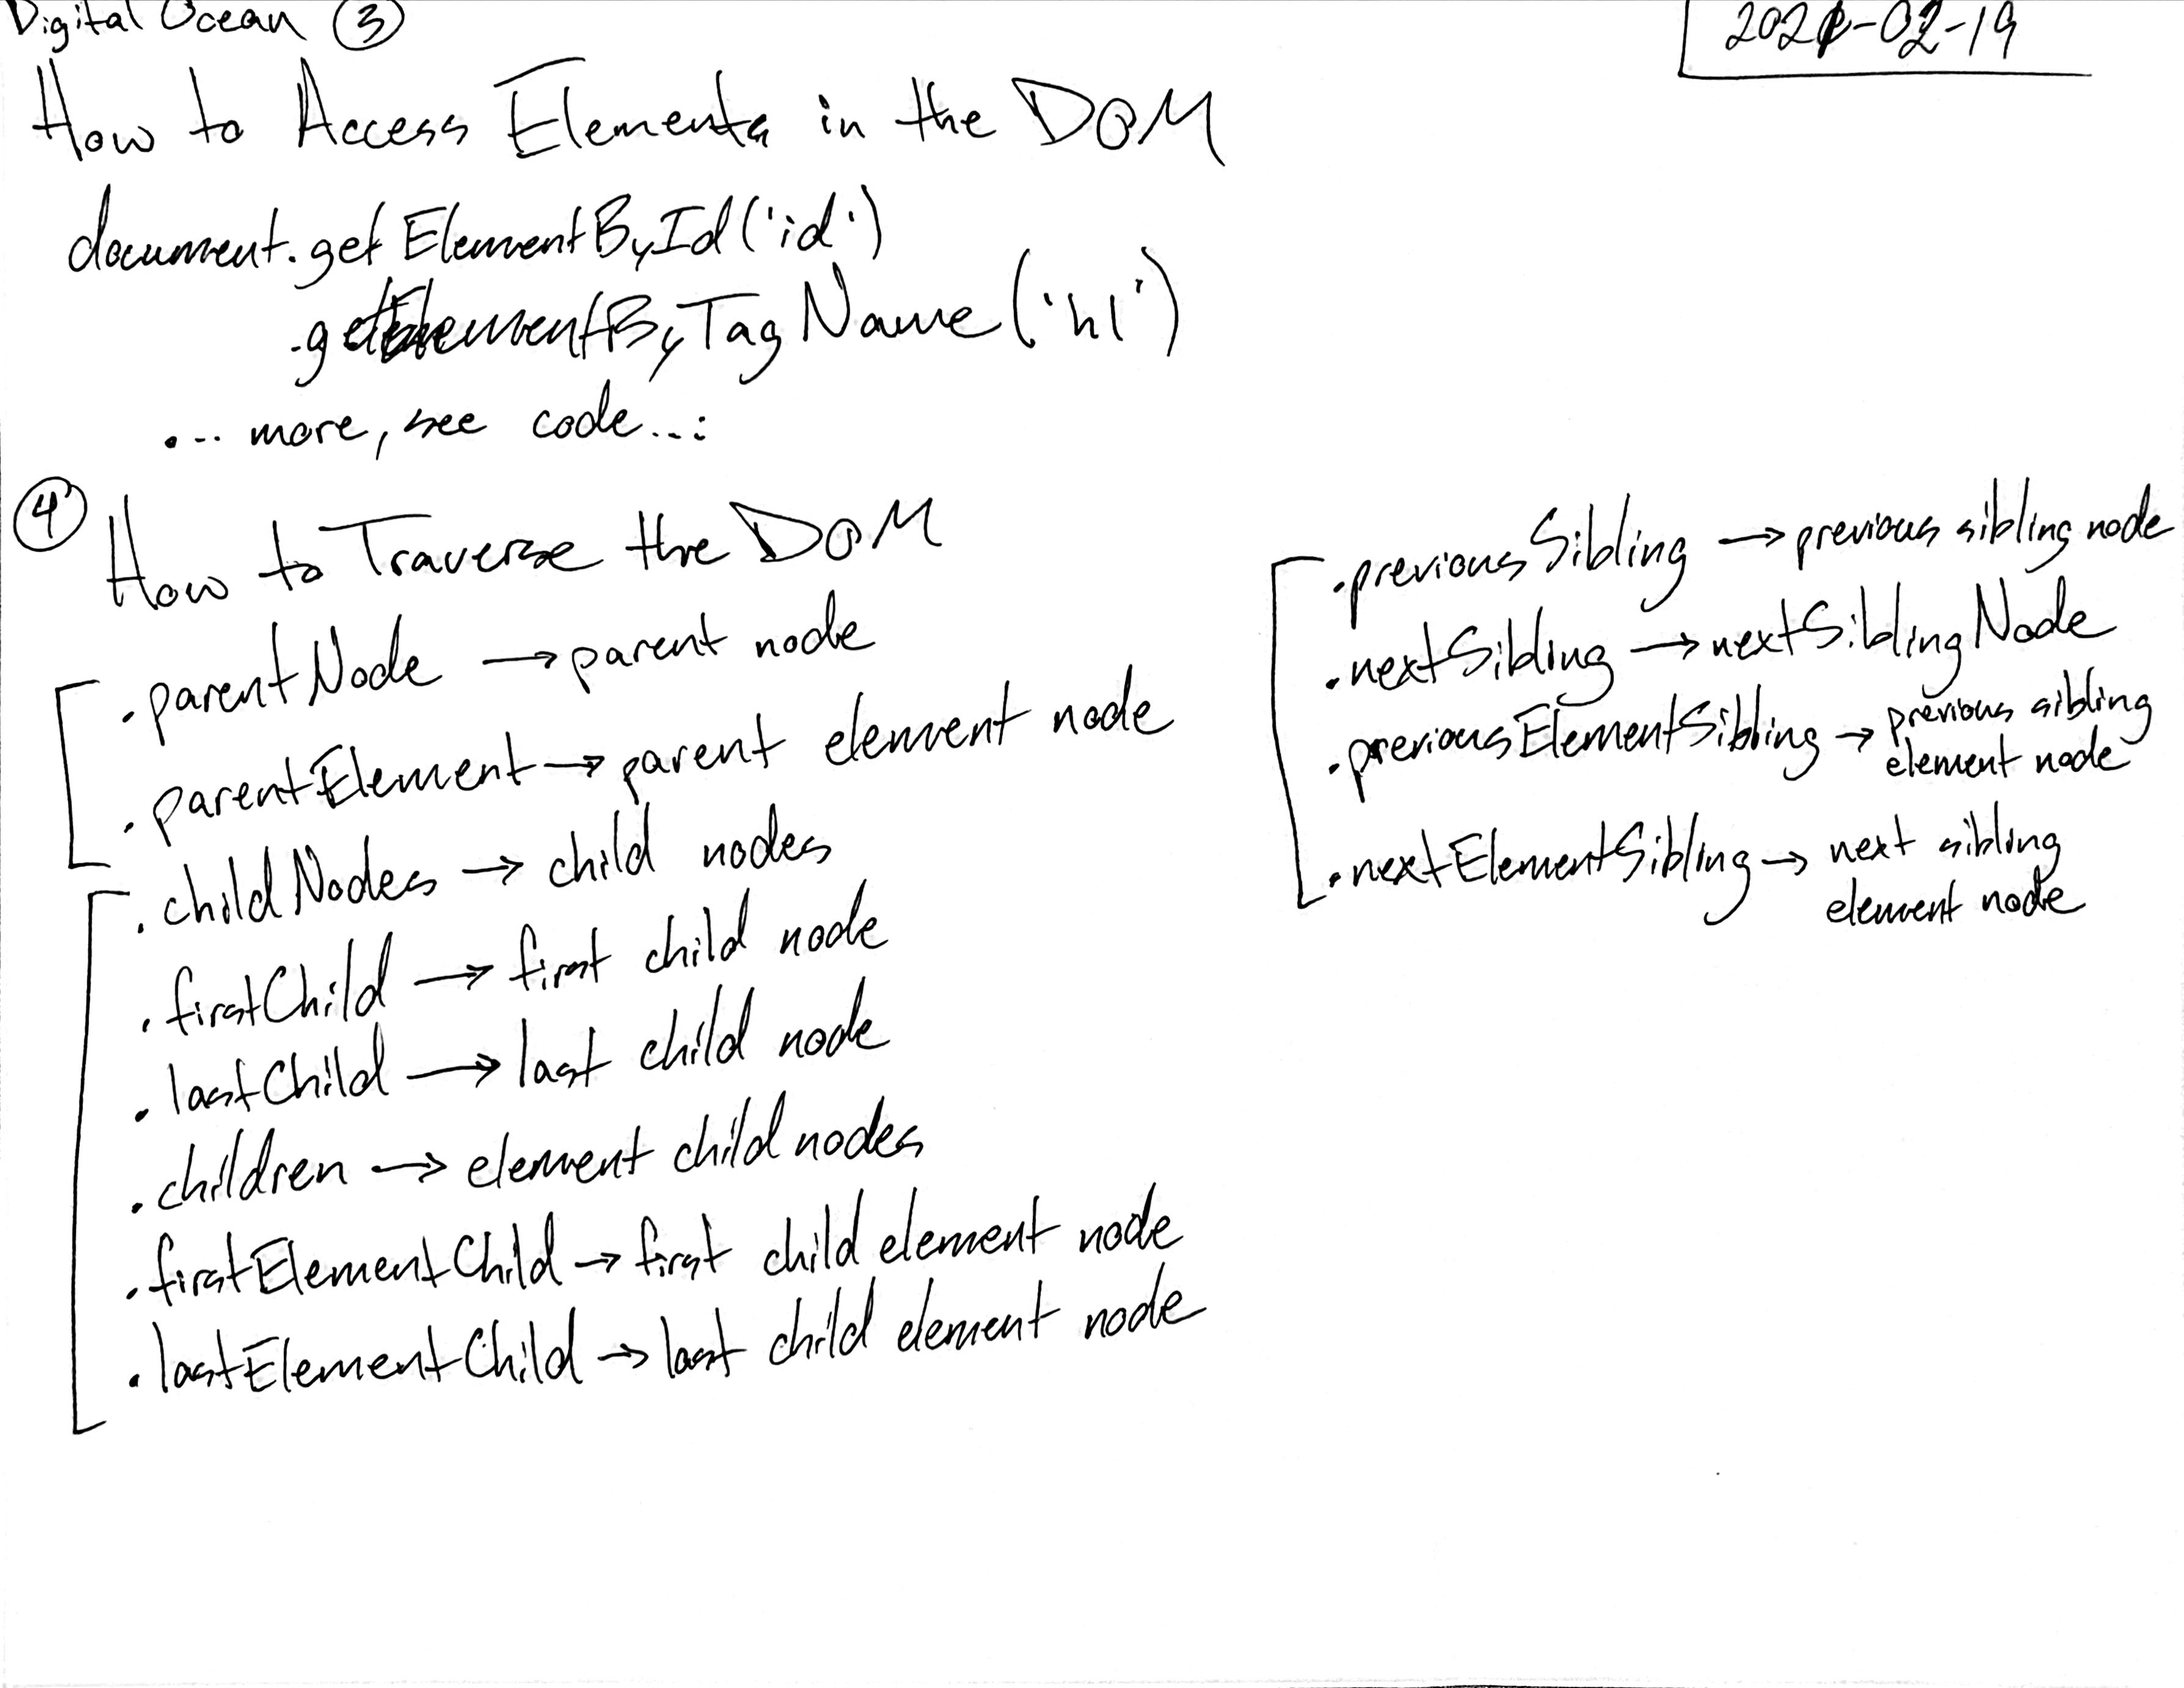 Digital Ocean ③
2021-02-19
How to Access Elements in the DOM
document.getElementById('id')
.getElementByTagName('h1')
... more, see code...:
④ How to Traverse the DOM
.parentNode → parent node
.parentElement → parent element node
.childNodes → child nodes
.firstChild → first child node
.lastChild → last child node
.children → element child nodes
.firstElementChild → first child element node
.lastElementChild → last child element node
.previousSibling → previous sibling node
.nextSibling → nextSiblingNode
.previousElementSibling → previous sibling
element node
.nextElementSibling → next sibling
element node